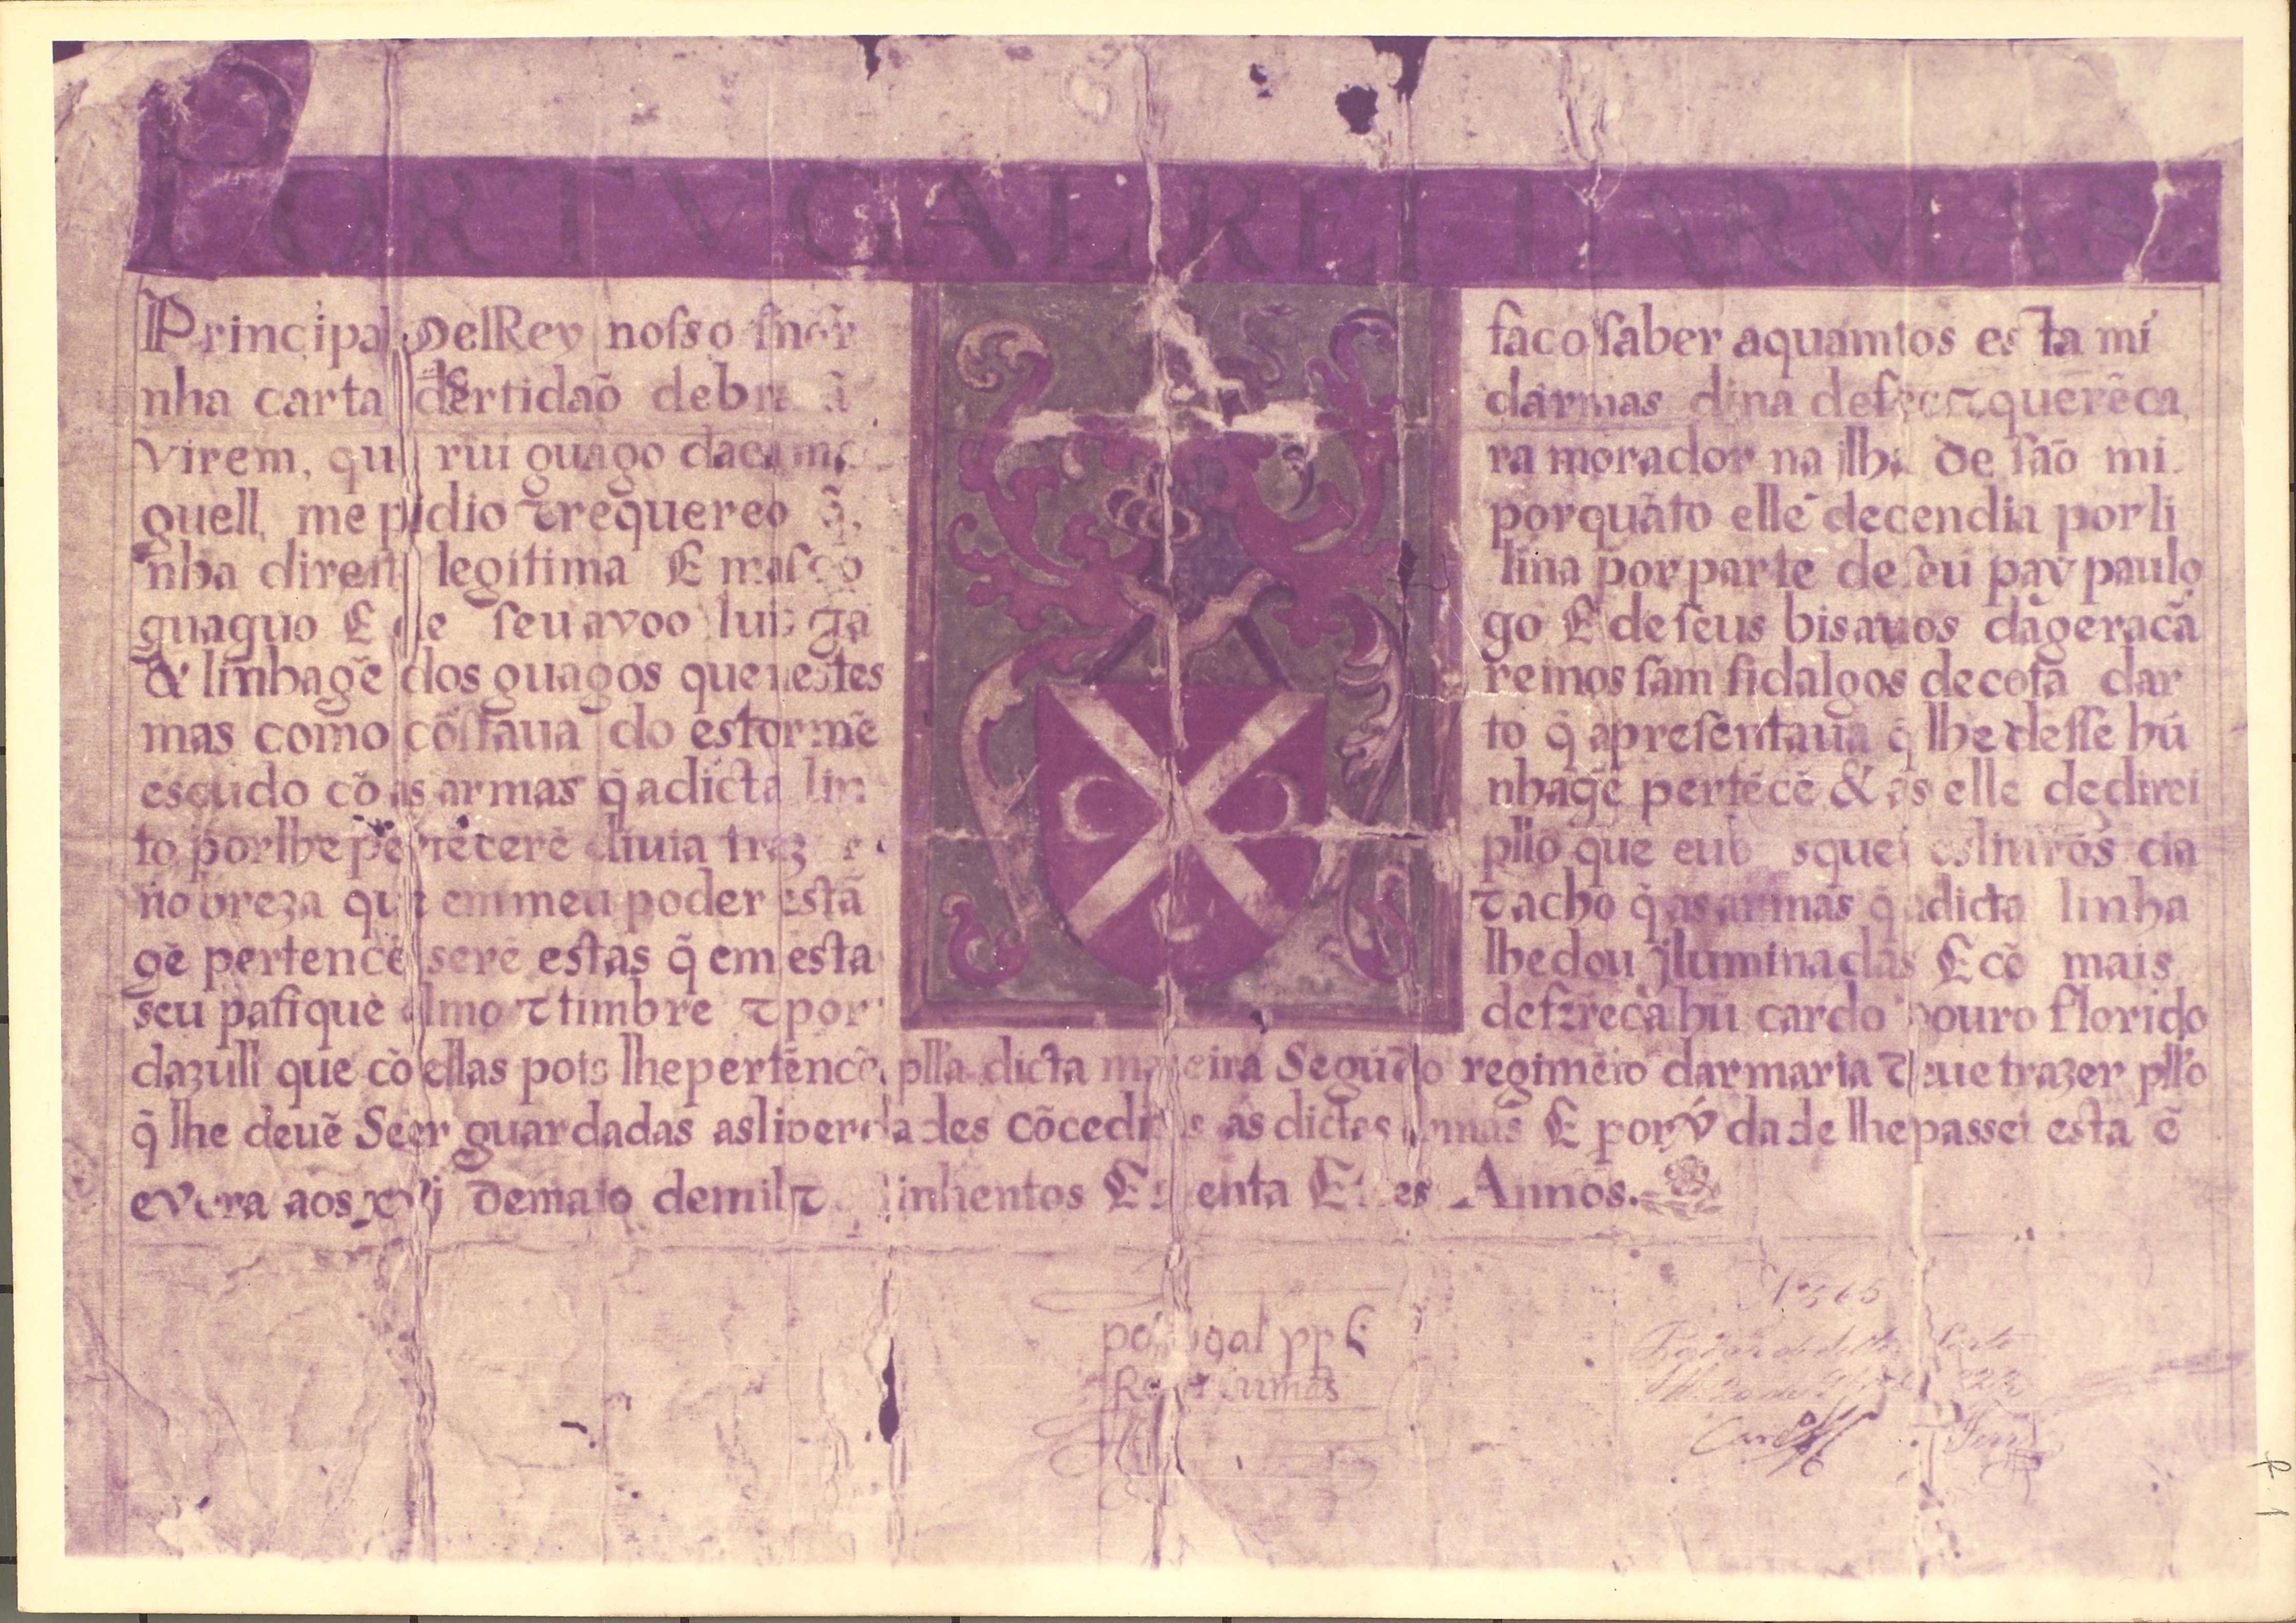 PORTVGAL REI DARMAS
Principal DelRey nosso sñor faco saber aquamtos esta mi
nha carta de certidaõ de darmas dina
virem, que rui guago dacamara morador na jlha de saõ mi
guell, me pidio & requereo q̃ porquãto elle decendia por li
nha legitima E mascolina por parte de seu pay paulo
guaguo E de seu avoo luis gago E de seus bisavos dageracã
& linhagẽ dos guagos que nestes reinos sam fidalgos de cota dar
mas como cõstaua do estormẽto q̃ apresentaua q̃ lhe desse hũ
escudo cõ as armas q̃ adicta linhagẽ pertẽcẽ & as elle de direi
to por lhe pertẽcerẽ diuia trazer pllo que eu busquei os liuros da
nobreza que em meu poder estã & acho q̃ as armas q̃ adicta linha
gẽ pertencẽ serẽ estas q̃ em esta lhe dou jluminadas E cõ mais
seu pafique elmo & timbre & por defzreça hũ cardo douro florido
dazull que cõ ellas pois lhe pertẽncẽ plla dicta maneira Segũdo regimẽto darmaria deue trazer pllo
q̃ lhe deuẽ Seer guardadas as liberdades cõcedidas ás dictas armas E por v̊dade lhe passei esta ẽ
evora aos xvj demaio demil & quinhentos E E tres Annos.
portugal pp̃l
Rei darmas
Nº 565